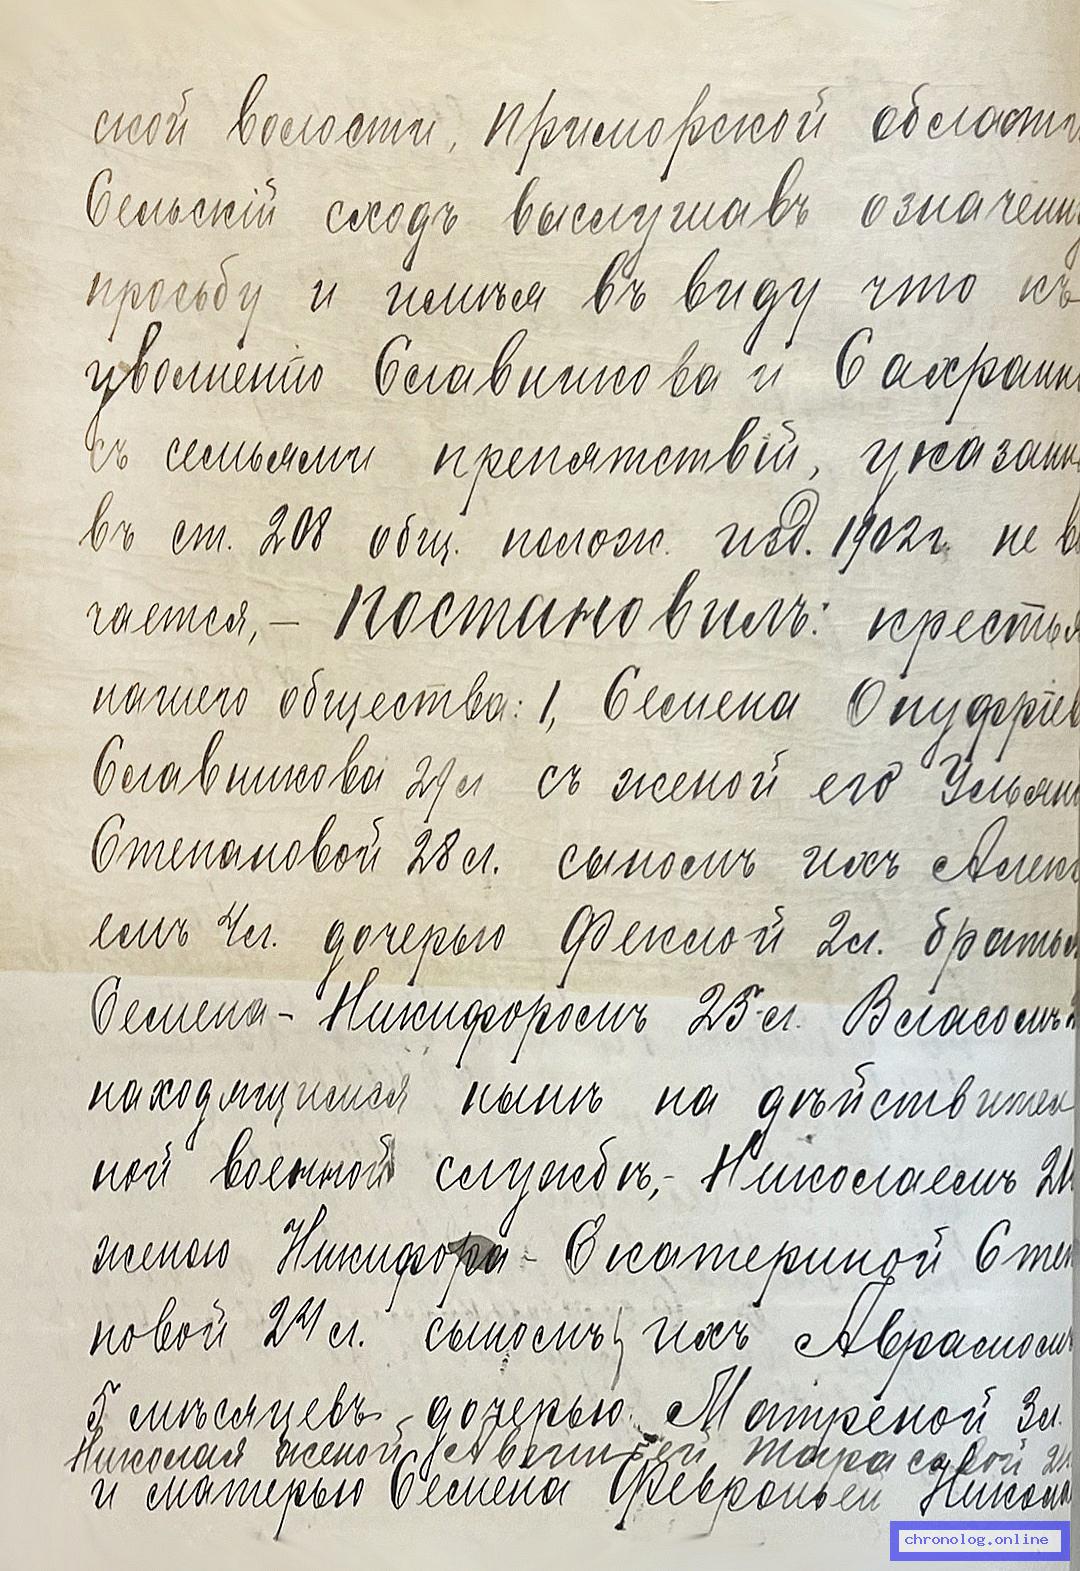 ской волости, Приморской области
Сельскій сходъ выслушавъ означенн
просьбу и имѣя въ виду что къ
увольненію Славникова и Сахранн
съ семьями препятствій, указанн
въ ст. 208 общ. полож. изд. 1902г. не в
чается, — постановилъ: крестья
нашего общества: 1, Семена Онуфріев
Славникова 29л съ женой его Ульян
Степановой 28 л. сыномъ ихъ Алекс
емъ 4л. дочерью Феклой 2л. братья
Семена - Никифоромъ 25 л. Власомъ
находящимся нынѣ на дѣйствител
ной военной службѣ, - Николаемъ 21
женою Никифора - Екатериной Сте
новой 24 л. сыномъ ихъ Аврамомъ
5 мѣсяцевъ дочерью Матреной 3л.
Николая женой Тарасовой
и матерью Семена Февроньей Никола
chronolog.online